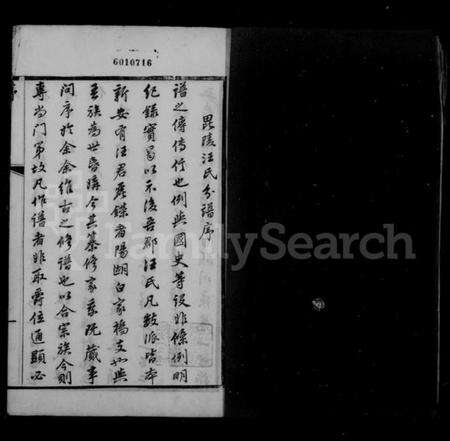 6010716
毘陵汪氏分譜序
譜之傳傳行也例與國史等設非條例明
紀錄實曷以示後吾郡汪氏凡數派皆本
新安有汪君 錄者陽湖白家橋支也與
吾族為世 講今其纂修家乘既蕆事
問序於余余維古之修譜也以合宗族今則
專尚門第故凡作譜者非取爵位通顯必
FamilySearch